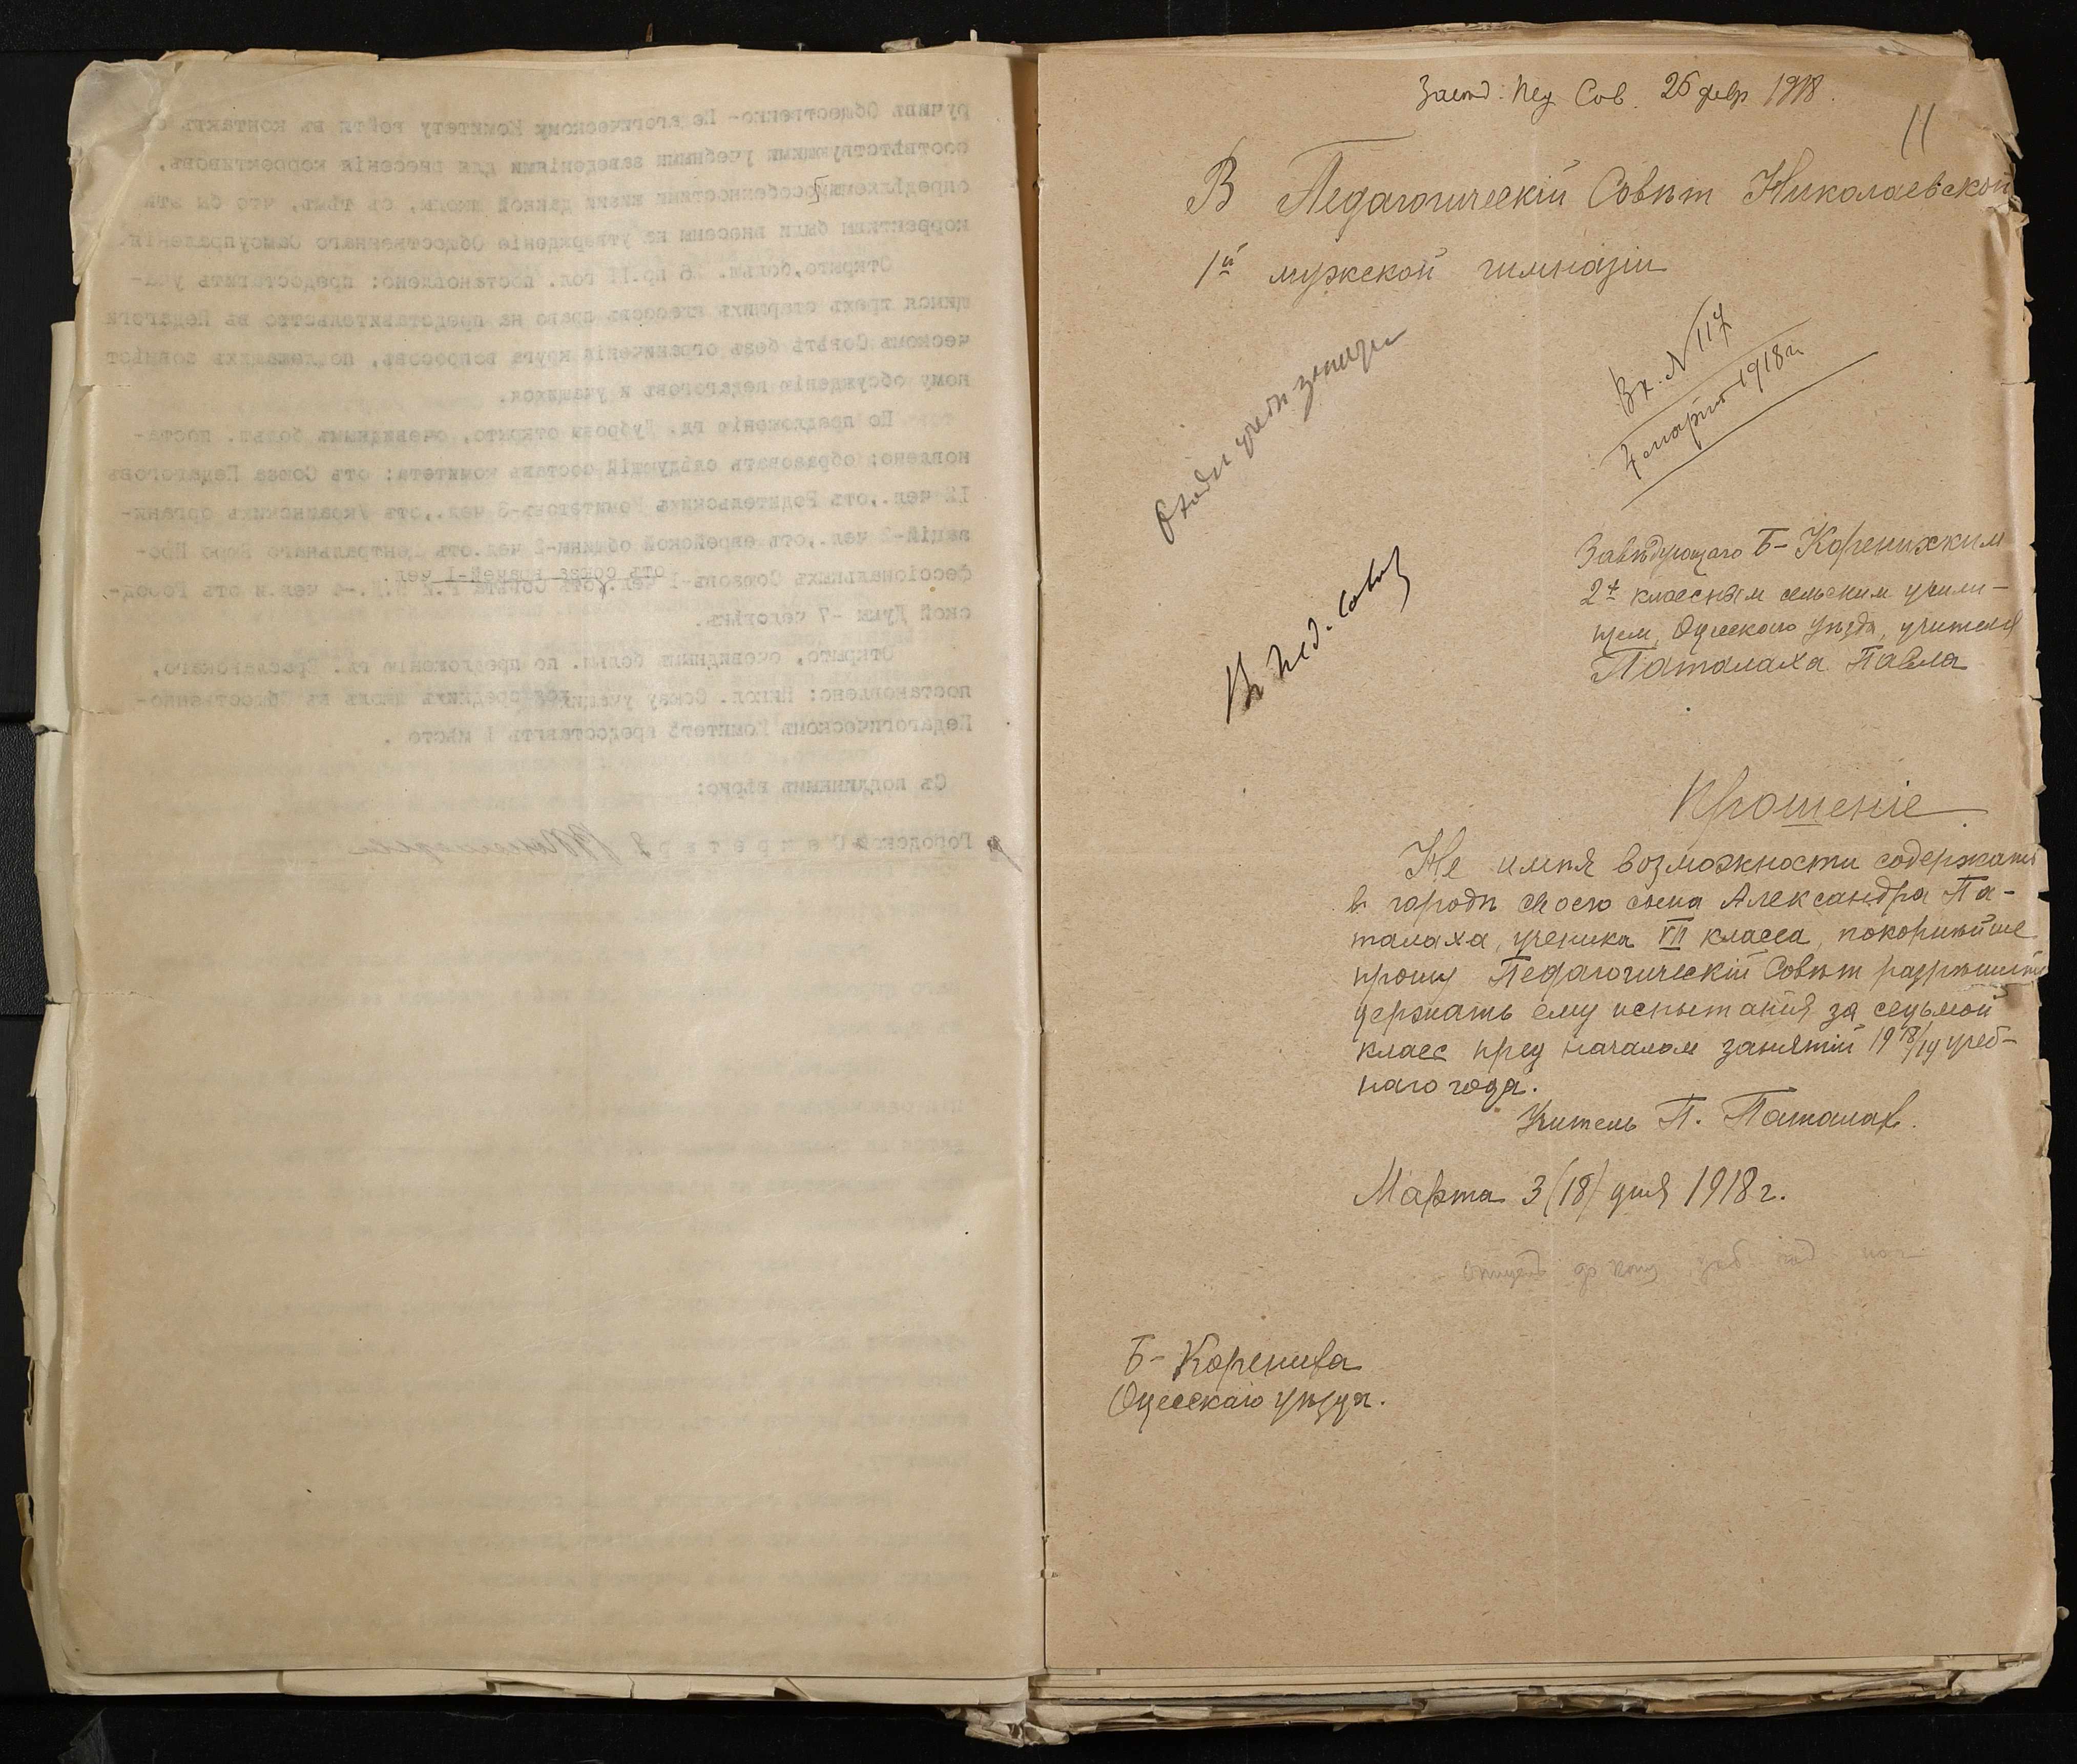 ручивъ Общественно-Педагогическому Комитету войти въ контактъ с
соотвѣтствующими учебными заведеніями для внесенія коррективовъ,
опредѣляемыхъ особенностями жизни данной школы, съ тѣмъ, что бы эти
коррективы были внесены на утвержденіе Общественнаго Самоуправленія.
Открыто, больш. 16 пр. II гол. постановлено: предоставить уча-
щимся трехъ старшихъ классовъ право на представительство въ Педагоги
ческомъ Совѣтѣ безъ ограниченія круга вопросовъ, подлежащихъ совмѣст
ному обсужденію педагоговъ и учащихся.
По предложенію гл. Дуброва открыто, очевиднымъ больш. поста-
новлено: образовать слѣдующій составъ комитета: отъ Союза Педагоговъ
12 чел., отъ Родительскихъ Комитетовъ-3 чел., отъ Украинскихъ органи-
зацій-2 чел., отъ еврейской общины-2 чел. отъ Центральнаго Бюро Про-
отъ союза врачей-1 чел.
фессіональныхъ Союзовъ-1 чел., отъ Совѣта Р. и С.Д.-4 чел. и отъ Город-
ской Думы -7 человѣкъ.
Открыто, очевиднымъ больш. по предложенію гл.
постановлено: Никол. Союзу учащихся среднихъ школъ въ Общественно-
Педагогическомъ Комитетѣ предоставить 1 мѣсто.
Съ подлиннымъ вѣрно:
Городской Секретарь
Засѣд. Пед. Сов. 26 февр 1918.
11
В Педагогическій Совѣт Николаевской
1й мужской гимназіи
Вх. N 117
4 марта 1918 г.
В Пед. Совѣт
Завѣдующаго Б-Коренихским
2х классным сельским учили-
щем, Одесскаго уѣзда, учителя
Паталаха Павла
Прошеніе
Не имѣя возможности содержать
в городѣ своего сына Александра Па-
талаха, ученика VII класса, покорнѣйше
прошу Педагогическій Совѣт разрѣшить
держать ему испытанія за седьмой
класс пред началом занятій 1918/19 учеб-
наго года.
Учитель П. Паталах.
Марта 3 (18) дня 1918 г.
Б-Корениха
Одесскаго уѣзда.